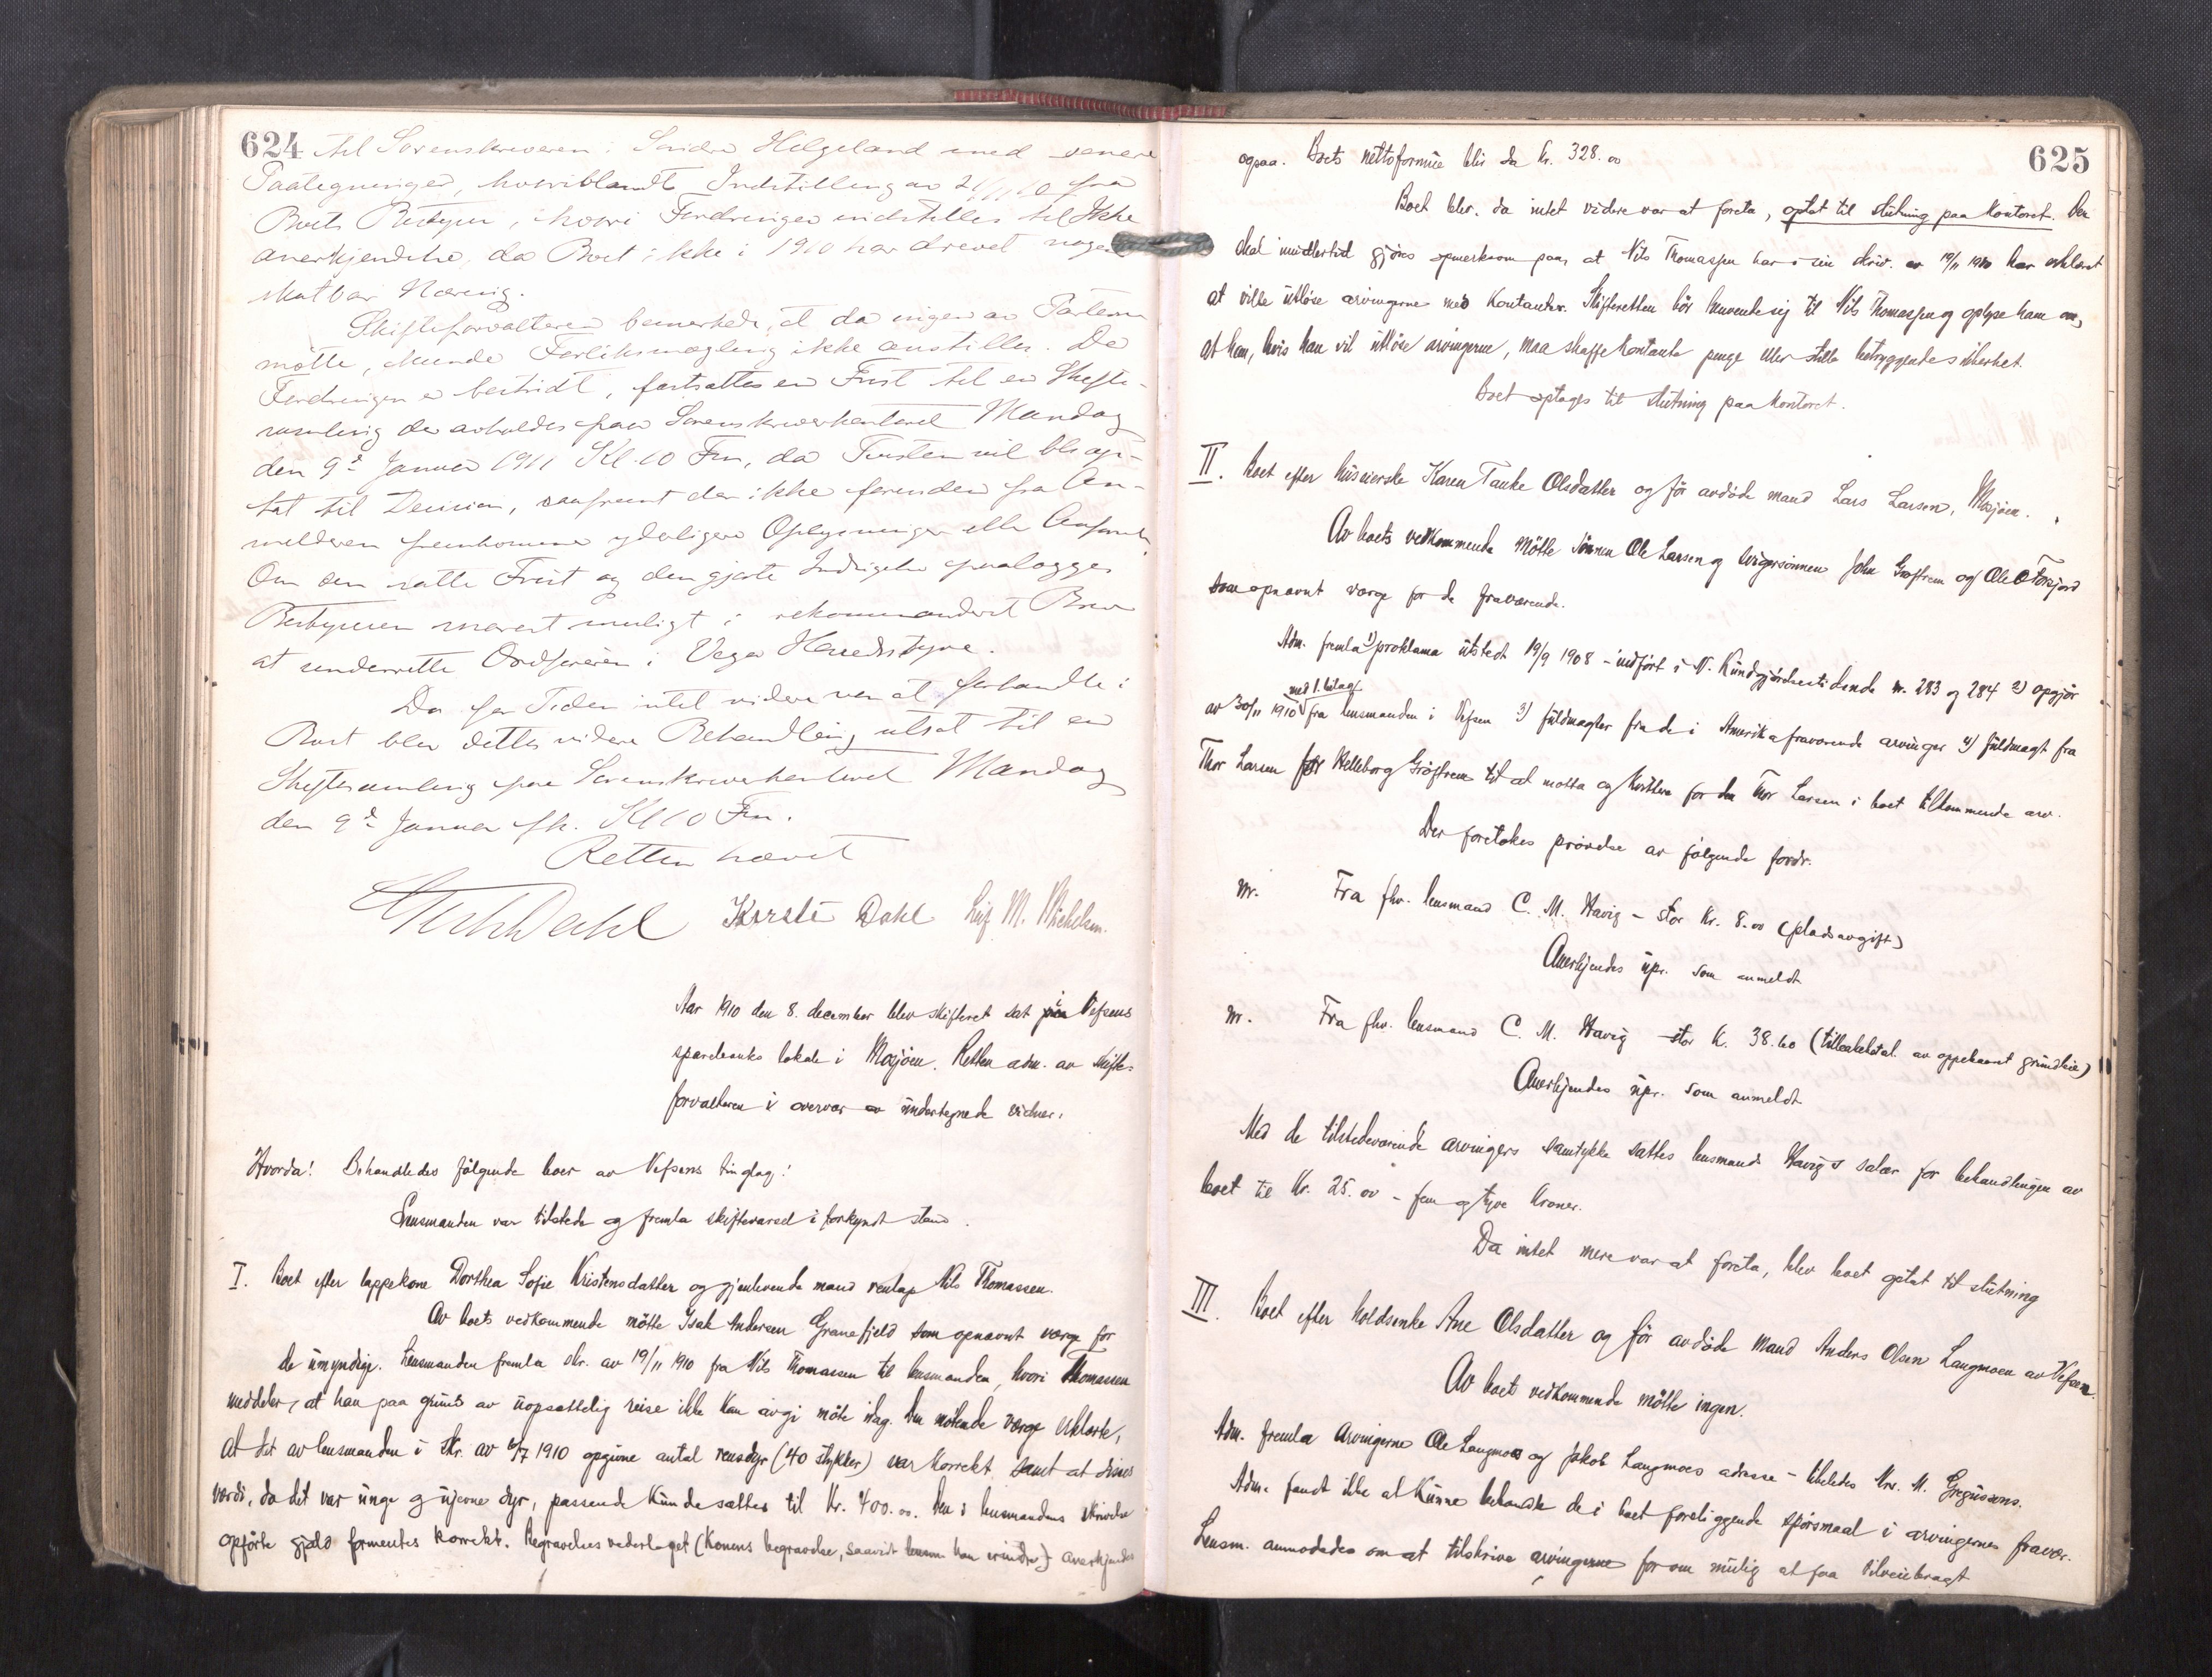 624
til Sorenskriveren i Søndre Helgeland med senere
Paategninger, hvoriblandt Indstilling av 21/11 10 fra
Boets Bestyrer, hvori Fordringen indstilles til Ikke
anerkjendelse, da Boet ikke i 1910 har drevet nogen
skatbar Næring.
Skifteforvalteren bemerkede, at da ingen av Parterne
møtte, kunde Forliksmægling ikke anstilles. Da
Fordringen er bestridt, fastsattes en Frist til en Skifte-
samling der avholdes paa Sorenskriverkontoret Mandag
den 9de Januar 1911 Kl. 10 Fm, da Tvisten vil bli op-
tat til Decision, saafremt der ikke forinden fra An-
melderen fremkommer yderligere Oplysninger eller
Om den satte Frist og den gjorte Indsigelse paalægges
Bestyreren snarest muligt i rekommanderet Brev
at underrette Ordføreren i Vega Herredsstyre.
Da for Tiden intet videre var at forhandle i
Boet blev dettes videre Behandling utsat til en
Skiftesamling paa Sorenskriverkontoret Mandag
den 9de Januar Kl 10 Fm.
Retten hævet
Dahl Kirsti Dahl Leif M. Michelsen.
Aar 1910 den 8. december blev skifteret sat i Vefsens
sparebanks lokale i Mosjøen. Retten adm. av skifte-
forvalteren i overvær av undertegnede vidner.
Hvorda! Behandledes følgende boer av Vefsens tinglag:
Lensmanden var tilstede og fremla skiftevarsel i forkyndt stand.
I. Boet efter lappekone Dorthea Sofie Kristensdatter og gjenlevende mand renlap Nils Thomassen.
Av boets vedkommende møtte Isak Andersen Granefjeld som opnævnt værge for
de umyndige. Lensmanden fremla skr. av 19/11 1910 fra Nils Thomassen til lensmanden, hvori Thomassen
meddeler, at han paa grund av uopsættelig reise ikke kan avgi møte idag. Den møtende værge erklærte,
at det av lensmanden i skr. av 6/7 1910 opgivne antal rensdyr (40 stykker) var korrekt samt at disses
værdi, da det var unge og ujevne dyr, passende kunde sættes til Kr. 400.00. Den i lensmandens skrivelse
opførte gjæld formentes korrekt. Begravelses vederlaget (Konens begravelse, saavidt han erindrer) anerkjendes
625
ogsaa. Boets nettoformue blir da kr. 328.00
Boet blev, da intet videre var at foreta, optat til slutning paa kontoret. Der
skal imidlertid gjøres opmerksom paa, at Nils Thomassen har i sin skriv. av 19/11 1910 har erklært
at ville utløse arvingerne med kontanter. Skifteretten bør henvende sig til Nils Thomassen og oplyse ham om,
at han, hvis han vil utløse arvingerne, maa skaffe kontante penge eller stille betryggende sikkerhet.
Boet optages til slutning paa kontoret.
II. Boet efter huseierske Karen Tanke Olsdatter og før avdøde mand Lars Larsen, Mosjøen.
Av boets vedkommende møtte sønnen Ole Larsen og svigersønnen John Grøftrem og Ole O Forsjord
som opnævnt værge for de fraværende.
Adm. fremla 1) proklama utstedt 19/9 1908 - indført i N. Kundgjørelsestidende nr. 283 og 284 2) opgjør
av 30/11 1910 med 1. bilag fra lensmanden i Vefsen 3) fuldmagter fra de i Amerika fraværende arvinger 4) fuldmagt fra
Thor Larsen for Helleborg Grøftrem til at motta og kvittere for den Thor Larsen i boet tilkommende arv.
Der foretokes prøvelse av følgende fordr.
Nr. Fra fhv. lensmand C. M. Havig - stor kr. 8.00 (pladsavgift)
Anerkjendes upr. som anmeldt
Nr. Fra fhv. lensmand C. M. Havig - stor kr. 38.60 (tilbakebetal. av oppebaaret grundleie)
Anerkjendes upr. som anmeldt
Med de tilstedeværende arvingers samtykke sattes lensmand Havig's salær for behandlingen av
boet til Kr. 25.00 - fem og tyve kroner.
Da intet mere var at foreta, blev boet optat til slutning
III. Boet efter holdsenke Ane Olsdatter og før avdøde mand Anders Olsen Langmoen av Vefsen.
Av boets vedkommende møtte ingen.
Adm. fremla arvingerne Ole Langmoes og Jakob Langmoes adresse - M. Gregusons.
Adm. fandt ikke at kunne behandle de i boet foreliggende spørsmaal i arvingernes fravær.
Lensm. anmodedes om at tilskrive arvingerne for om mulig at faa tilveiebragt